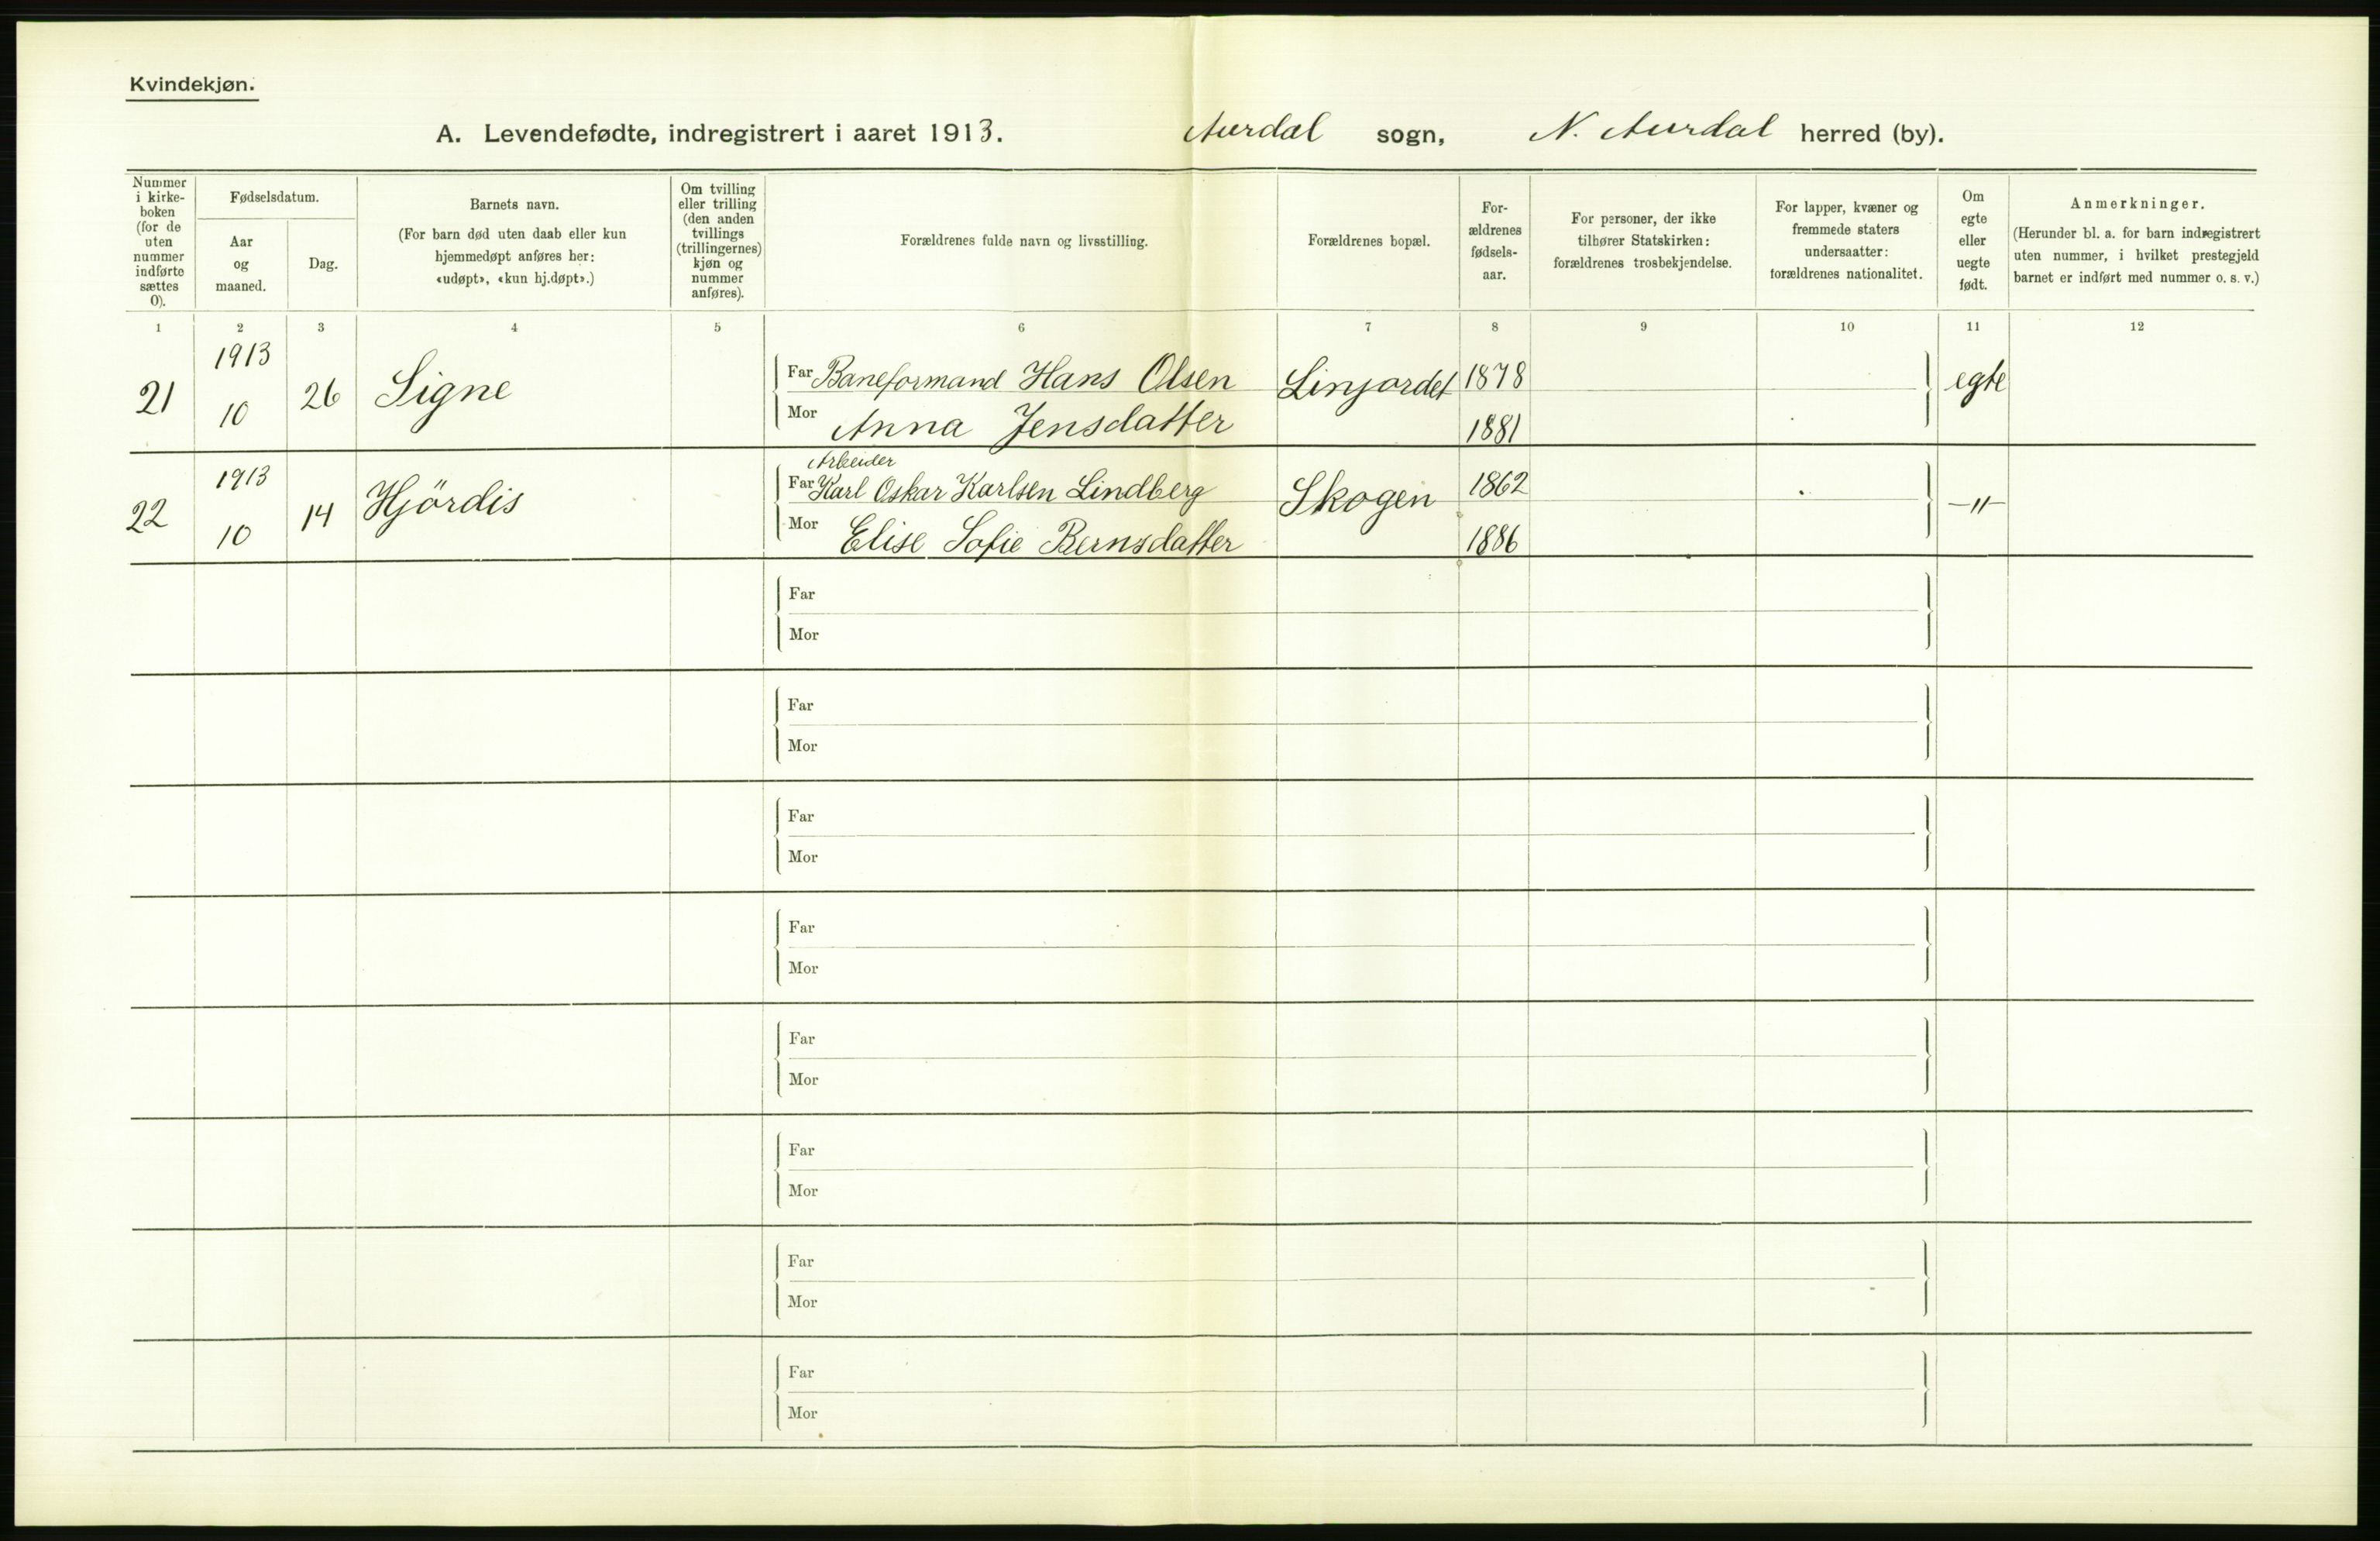 Kvindekjøn.
A. Levendefødte, indregistrert i aaret 1913. Aurdal sogn, N. Aurdal herred (by).
Nummer i kirke-boken (for de uten nummer indførte sættes 0).
Fødselsdatum.
Aar og maaned.
Dag.
Barnets navn.
(For barn død uten daab eller kun hjemmedøpt anføres her: «udøpt», «kun hj.døpt».)
Om tvilling eller trilling (den anden tvillings (trillingernes) kjøn og nummer anføres).
Forældrenes fulde navn og livsstilling.
Forældrenes bopæl.
For-ældrenes fødsels-aar.
For personer, der ikke tilhører Statskirken: forældrenes trosbekjendelse.
For lapper, kvæner og fremmede staters undersaatter: forældrenes nationalitet.
Om egte eller uegte født.
Anmerkninger.
(Herunder bl. a. for barn indregistrert uten nummer, i hvilket prestegjeld barnet er indført med nummer o. s. v.)
1 2 3 4 5 6 7 8 9 10 11 12
21 1913 10 26 Signe Far Baneformand Hans Olsen Linjordet 1878 egte
Mor Anna Jensdatter 1881
Arbeider
22 1913 10 14 Hjördis Far Karl Oskar Karlsen Lindberg Skogen 1862 —"—
Mor Elise Sofie Bernsdatter 1886
Far
Mor
Far
Mor
Far
Mor
Far
Mor
Far
Mor
Far
Mor
Far
Mor
Far
Mor